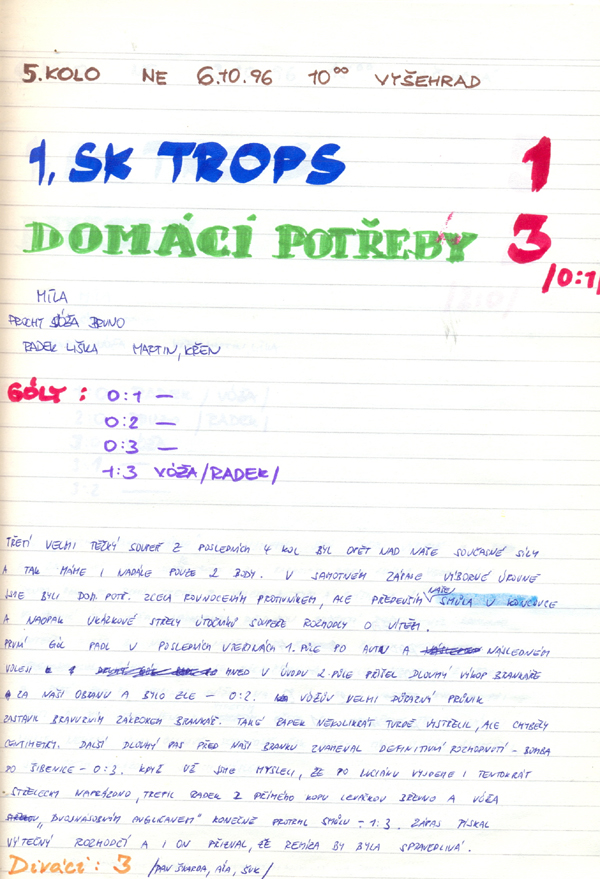 5. KOLO NE 6.10.96 10⁰⁰ VYŠEHRAD
1. SK TROPS 1
DOMÁCÍ POTŘEBY 3
/0:1/
MÍLA
PROCHT VÓŽA BRUNO
RADEK LIŠKA MARTIN, KŘEN
GÓLY :
0:1 —
0:2 —
0:3 —
1:3 VÓŽA /RADEK/
TŘETÍ VELMI TĚŽKÝ SOUPEŘ Z POSLEDNÍCH 4 KOL BYL OPĚT NAD NAŠE SOUČASNÉ SÍLY
A TAK MÁME I NADÁLE POUZE 2 BODY. V SAMOTNÉM ZÁPASE VÝBORNÉ ÚROVNĚ
JSME BYLI DOM. POTŘ. ZCELA ROVNOCENNÝM PROTIVNÍKEM, ALE PŘEDEVŠÍM NAŠE SMŮLA V KONCOVCE
A NAOPAK UKÁZKOVÉ STŘELY ÚTOČNÍKŮ SOUPEŘE ROZHODLY O VÍTĚZI.
PRVNÍ GÓL PADL V POSLEDNÍCH VTEŘINÁCH 1. PŮLE PO AUTU A NÁSLEDNÉM
VOLEJI HNED V ÚVODU 2. PŮLE PŘIŠEL DLOUHÝ VÝKOP BRANKÁŘE
ZA NAŠI OBRANU A BYLO ZLE – 0:2. VÓŽŮV VELMI DŮRAZNÝ PRŮNIK
ZASTAVIL BRAVURNÍM ZÁKROKEM BRANKÁŘ. TAKÉ RADEK NĚKOLIKRÁT TVRDĚ VYSTŘELIL, ALE CHYBĚLY
CENTIMETRY. DALŠÍ DLOUHÝ PAS PŘED NAŠI BRANKU ZNAMENAL DEFINITIVNÍ ROZHODNUTÍ – BOMBA
DO ŠIBENICE – 0:3. KDYŽ UŽ JSME MYSLELI, ŽE PO LUCIÁNU VYJDEME I TENTOKRÁT
STŘELECKY NAPRÁZDNO, TREFIL RADEK Z PŘÍMÉHO KOPU LEVAČKOU BŘEVNO A VÓŽA
„DVOJNÁSOBNÝM ANGLIČANEM" KONEČNĚ PROTRHL SMŮLU – 1:3. ZÁPAS PÍSKAL
VÝTEČNÝ ROZHODČÍ A I ON PŘIZNAL, ŽE REMÍZA BY BYLA SPRAVEDLIVÁ.
Diváci : 3 /PAN ŠKARDA, AŠA, SUK/